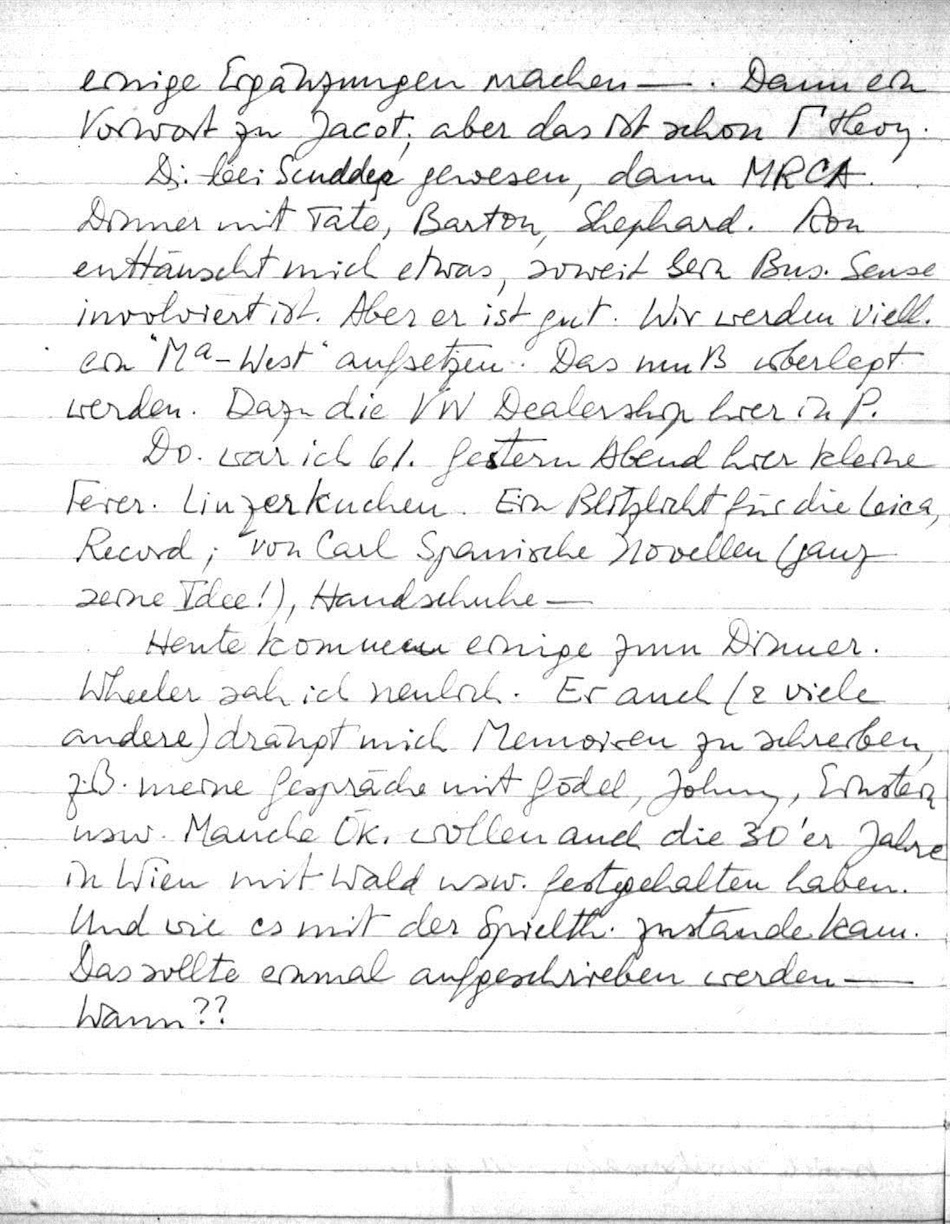 einige Ergänzungen machen — . Dann ein
Vorwort zu Jacot; aber das ist schon Γ Theory.
Di. bei gewesen, dann MRCA.
Dinner mit Tate, Barton, Shephard. Ron
enttäuscht mich etwas, soweit sein Bus. Sense
involviert ist. Aber er ist gut. Wir werden viell.
ein "Ma-West" aufsetzen. Das muß überlegt
werden. Dazu die VW Dealership hier in P.
Do. war ich 61. Gestern Abend hier kleine
Feier. Linzerkuchen. Ein Blitzlicht für die Leica,
Record; von Carl Spanische Novellen (ganz
seine Idee!), Handschuhe —
Heute kommen einige zum Dinner.
Wheeler sah ich neulich. Er auch (& viele
andere) drängt mich Memoiren zu schreiben,
z.B. meine Gespräche mit Gödel, Johnny, Einstein
usw. Manche Ök. wollen auch die 30'er Jahre
in Wien mit Wald usw. festgehalten haben.
Und wie es mit der Spielth. zustande kam.
Das sollte einmal aufgeschrieben werden —
Wann??